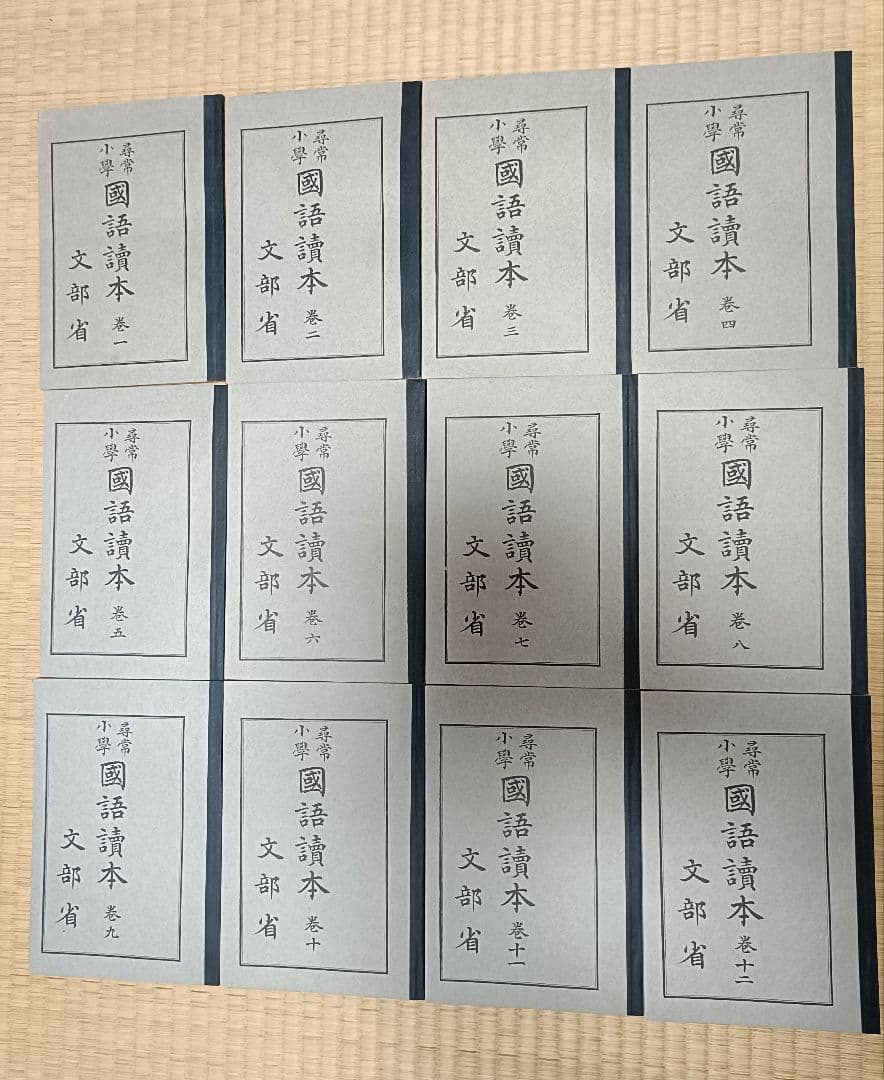 尋常小學 國語讀本 卷一
文部省
尋常小學 國語讀本 卷二
文部省
尋常小學 國語讀本 卷三
文部省
尋常小學 國語讀本 卷四
文部省
尋常小學 國語讀本 卷五
文部省
尋常小學 國語讀本 卷六
文部省
尋常小學 國語讀本 卷七
文部省
尋常小學 國語讀本 卷八
文部省
尋常小學 國語讀本 卷九
文部省
尋常小學 國語讀本 卷十
文部省
尋常小學 國語讀本 卷十一
文部省
尋常小學 國語讀本 卷十二
文部省